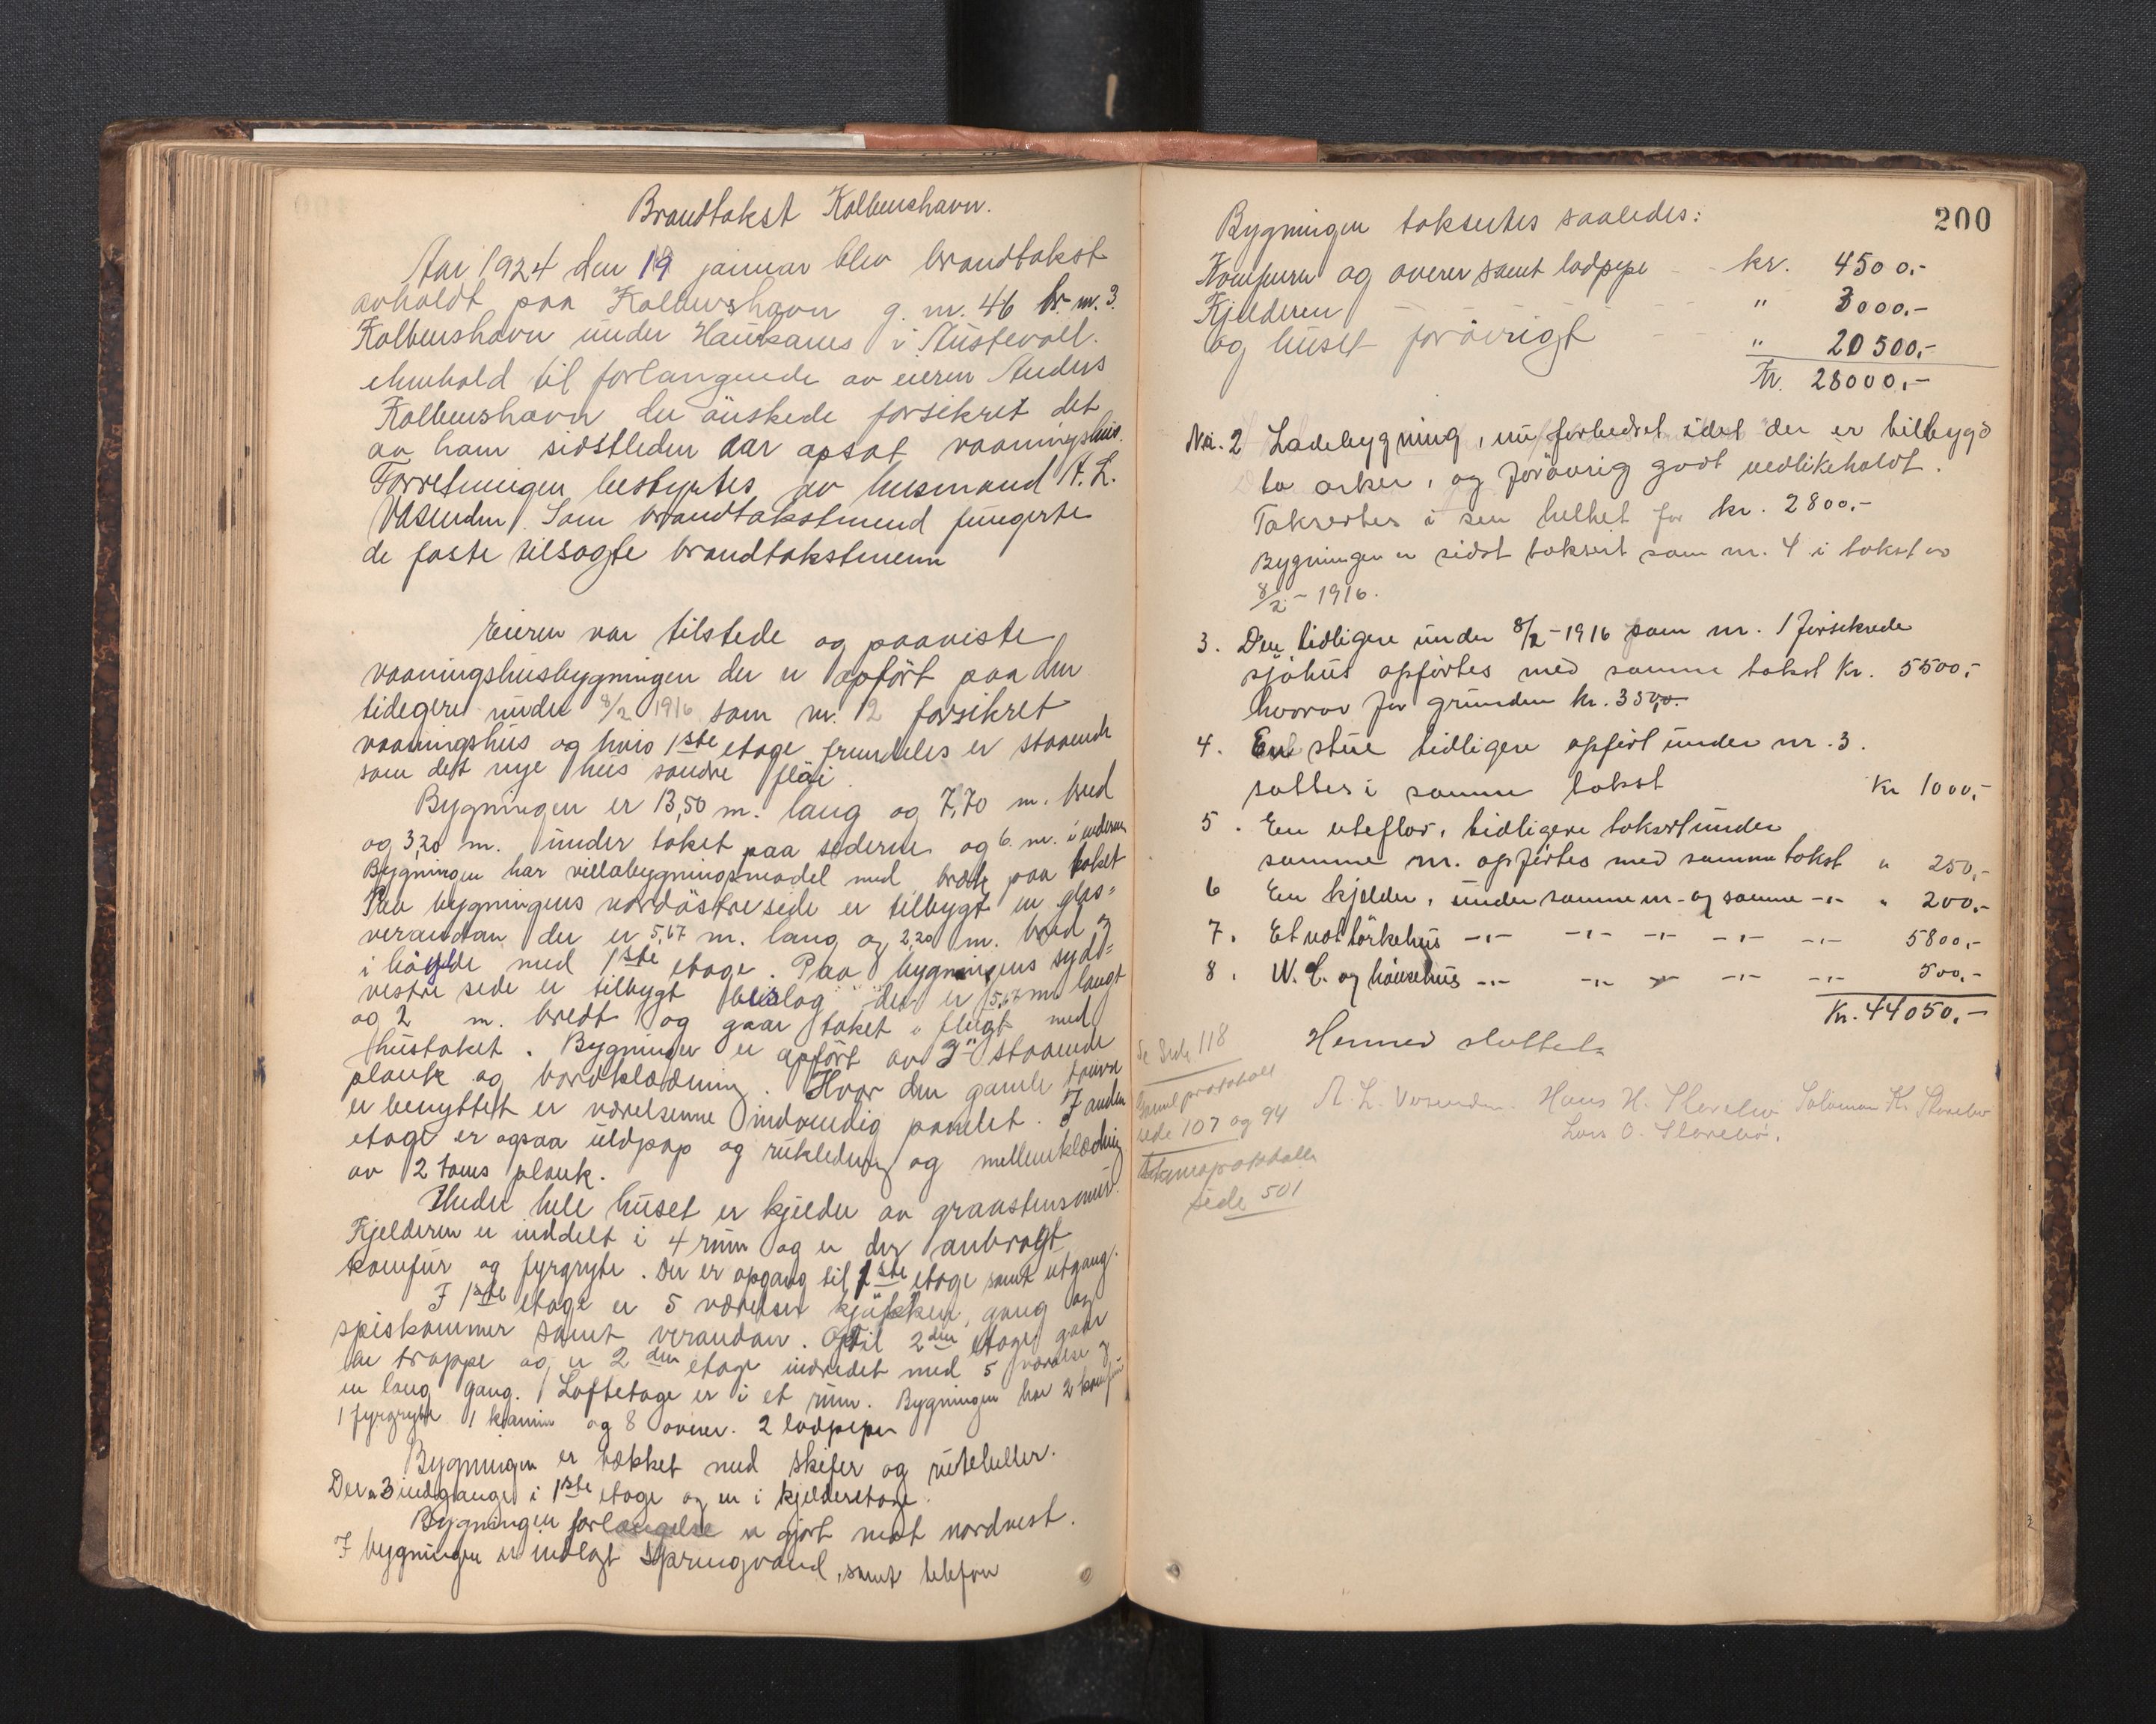 Brandtakst Kolbenshavn.
Aar 1924 den 19 januar blev brandtakst
avholdt paa Kolbenshavn g. nr. 46 br. nr. 3.
Kolbenshavn under Haukanes i Austevoll.
ehenhold til forlangende av eieren Anders
Kolbenshavn der önskede forsikret det
av ham sidstleden aar opsat vaaningshus.
Forretningen bestyrtes av lensmand A. L.
Vasenden. Som brandtakstmend fungerte
de faste tilsagte brandtakstmenn
Eieren var tilstede og paaviste
vaaningshusbygningen der er opfört paa den
tidegere under 8/2 1916 som nr. 2 forsikret
vaaningshus og hvis 1ste etage fremdeles er staaende
som det nye hus søndre flöi
Bygningen er 13,50 m. lang og 7,70 m. bred
og 3,20 m. under taket paa siderne og 6. m. i enderne
Bygningen har villabygningsmodel med bræk paa taket
Paa bygningens nordöstre side er tilbygt en glas=
verandan der er 5,67 m. lang og 2,20 m. bred og
i höyde med 1ste etage. Paa bygningens syd=
vestre side er tilbygt bislag der er 5,67 m langt
og 2 m. bredt og gaar taket i flugt med
hustaket. Bygningen er opfört av 3" staaende
plank og bordklædning. Hvor den gamle
er benyttet er værelsenne indvendig panelet. I anden
etage er ogsaa uldpap og rukledning og mellemklædning
av 2 toms plank.
Under hele huset er kjelder av graastensmur.
Kjelderen er inddelt i 4 rum og er der anbragt
komfur og fyrgryte. Der er opgang til 1ste etage samt utgang.
I 1ste etage er 5 værelser kjökken, gang og
spiskammer samt verandan. Optil 2den etage gaar
en trappe og er 2den etage indredet med 5 værelse og
en lang gang. Loftetage er i et rum. Bygningen har 2 komfur
1 fyrgryte 1 kamin og 8 ovner. 2 lodpiper
Bygningen er tækket med skifer og ruteheller.
Der er 3 indgange i 1ste etage og en i kjelderetage.
Bygningen forlængelse er gjort mot nordvest.
I bygningen er indlagt springvand, samt telefon
200
Bygningen taksertes saaledes:
Komfuren og ovner samt lodpipe kr. 4500.-
Kjelderen " 3000.-
og huset forövrigt " 20500.-
Kr. 28000.-
No. 2 Ladebygning, nu forbedret idet der er tilbygd
to arker, og forövrig godt vedlikeholdt.
Taksertes i sen helhet for kr. 2800.-
Bygningen er sidst taksert som nr. 4 i takst av
8/2 - 1916.
3. Den tidligere under 8/2 - 1916 som nr. 1 forsikrede
sjöhus opförtes med samme takst Kr. 5500.-
hvorav for grunden kr. 3500.-
4. En stue tidligere opfört under nr. 3.
sattes i samme takst Kr 1000.-
5. En uteflor, tidligere taksert under
samme nr. opförtes med samme takst " 250.-
6 En kjelder, under samme nr. og samme -"- " 200.-
7. Et nottörkehus -"- -"- -"- -"- -"- 5800.-
8. W. C. og hönsehus -"- -"- -"- -"- -"- 500.-
Kr. 44050.-
Hermed sluttet.
A. L. Vasenden. Hans H. Storebø Salamon K. Storebø
Lars O. Storebö.
Se Side 118
Gammel protokoll
side 107 og 94
side 501